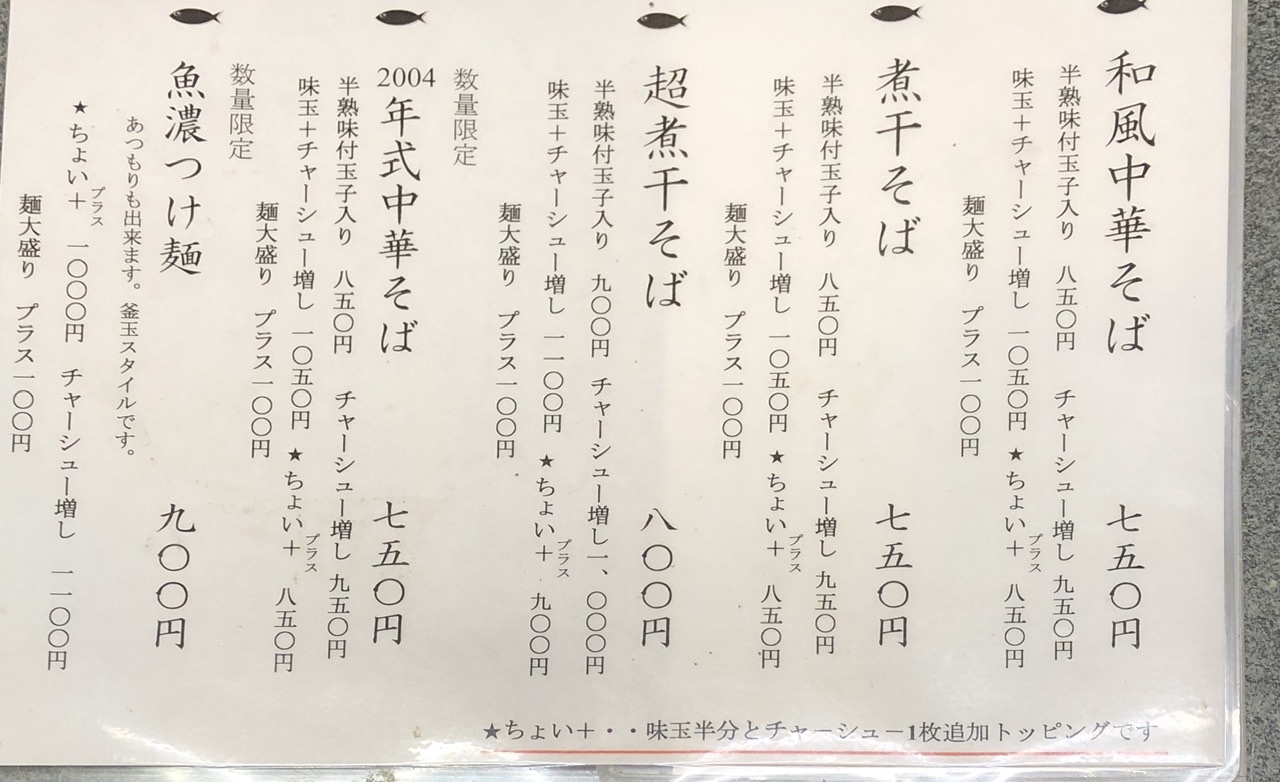 和風中華そば 七五〇円
半熟味付玉子入り 八五〇円 チャーシュー増し 九五〇円
味玉＋チャーシュー増し 一〇五〇円 ★ちょい＋プラス 八五〇円
麺大盛り プラス一〇〇円
煮干そば 七五〇円
半熟味付玉子入り 八五〇円 チャーシュー増し 九五〇円
味玉＋チャーシュー増し 一〇五〇円 ★ちょい＋プラス 八五〇円
麺大盛り プラス一〇〇円
超煮干そば 八〇〇円
半熟味付玉子入り 九〇〇円 チャーシュー増し 一、〇〇〇円
味玉＋チャーシュー増し 一一〇〇円 ★ちょい＋プラス 九〇〇円
麺大盛り プラス一〇〇円
数量限定
2004年式中華そば 七五〇円
半熟味付玉子入り 八五〇円 チャーシュー増し 九五〇円
味玉＋チャーシュー増し 一〇五〇円 ★ちょい＋プラス 八五〇円
麺大盛り プラス一〇〇円
数量限定
魚濃つけ麺 九〇〇円
あつもりも出来ます。釜玉スタイルです。
★ちょい＋プラス 一〇〇〇円 チャーシュー増し 一一〇〇円
麺大盛り プラス一〇〇円
★ちょい＋・・味玉半分とチャーシュー1枚追加トッピングです